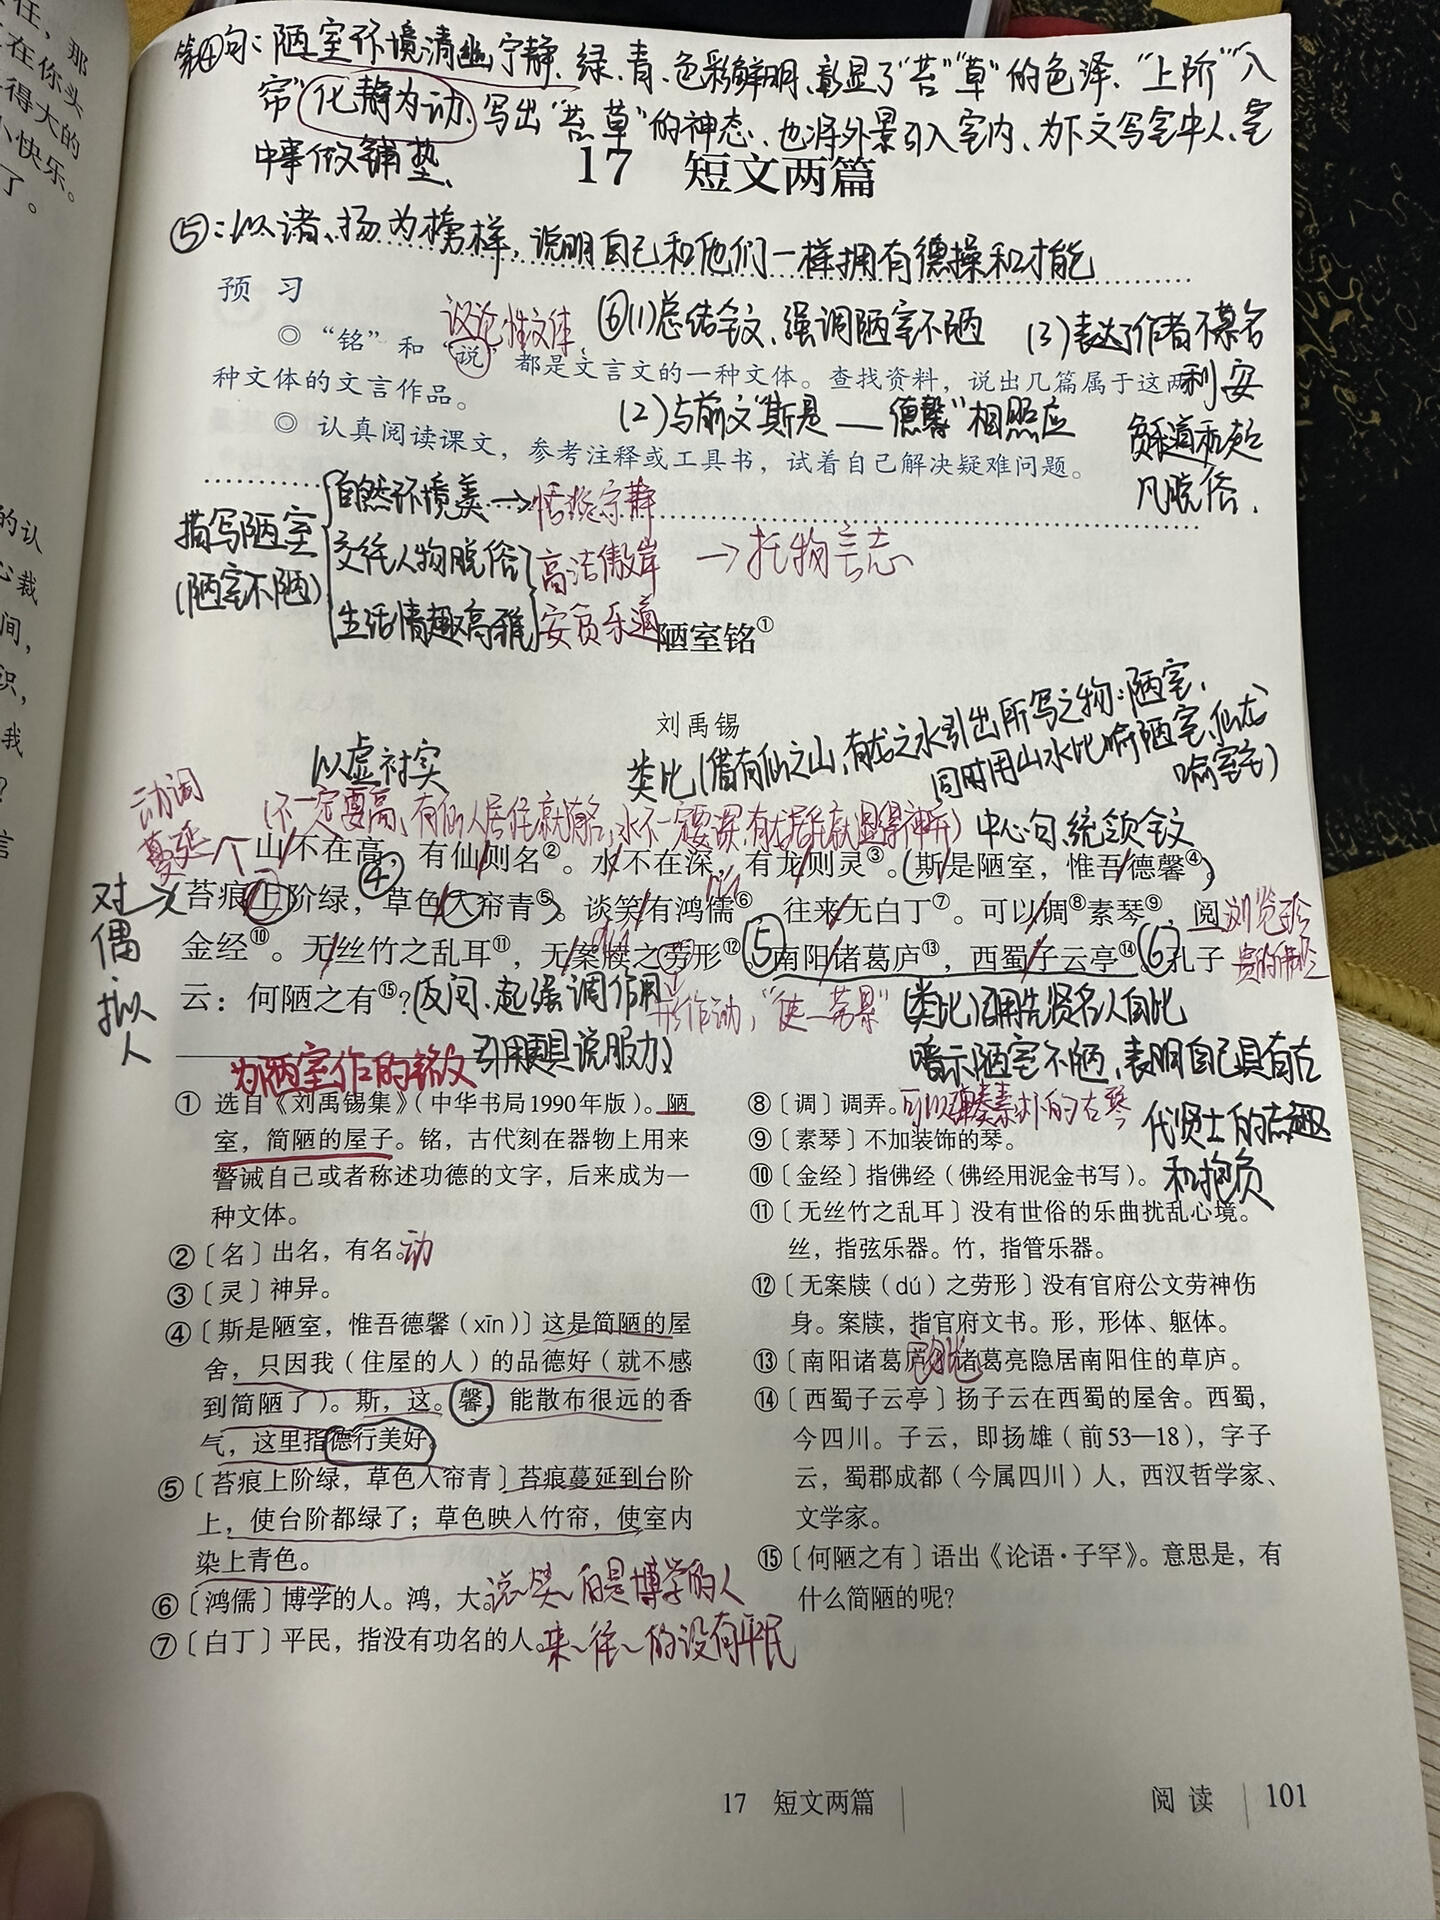 任，那
在你头
得大的
小快乐。
了。
的认
心裁
间，
识，
我
？
言
第④句：陋室环境清幽宁静、绿、青、色彩鲜明、彰显了“苔”“草”的色泽、“上阶”“入
帘”化静为动、写出“苔草”的神态、也将外景引入室内、为下文写室中人、室
中事做铺垫、
17 短文两篇
⑤：以诸、扬为榜样，说明自己和他们一样拥有德操和才能
预 习
议论性文体
⑥(1)总结全文、强调陋室不陋
(3)表达了作者不慕名
利安
贫乐道和超
凡脱俗．
◎ “铭”和“说”都是文言文的一种文体。查找资料，说出几篇属于这两
种文体的文言作品。
(2)与前文“斯是——德馨”相照应
◎ 认真阅读课文，参考注释或工具书，试着自己解决疑难问题。
描写陋室
(陋室不陋)
自然环境美→恬淡宁静
交往人物脱俗 高洁傲岸 →托物言志
生活情趣高雅 安贫乐道
陋室铭①
刘禹锡
以虚衬实
类比(借有仙之山，有龙之水引出所写之物：陋室，
同时用山水比喻陋室、仙龙
喻室主)
动词
蔓延
(不一定要高、有仙人居住就有名，水不一定要深，有龙居住就显得神异)
中心句统领全文
山不在高，有仙则名②。水不在深，有龙则灵③。斯是陋室，惟吾德馨④。
对偶·拟人
④
苔痕上阶绿，草色入帘青⑤。谈笑有鸿儒⑥，往来无白丁⑦。可以调⑧素琴⑨，阅
浏览珍
贵的佛经
⑤ ⑥
金经⑩。无丝竹之乱耳⑪，无案牍之劳形⑫。南阳诸葛庐⑬，西蜀子云亭⑭。孔子
云：何陋之有⑮？
(反问、起强调作用
引用更具说服力)
形作动，“使—劳累”
(类比)用先贤名人自比
暗示陋室不陋，表明自己具有古
代贤士的志趣
和抱负
为陋室作的铭文
① 选自《刘禹锡集》（中华书局1990年版）。陋
室，简陋的屋子。铭，古代刻在器物上用来
警诫自己或者称述功德的文字，后来成为一
种文体。
②〔名〕出名，有名。动
③〔灵〕神异。
④〔斯是陋室，惟吾德馨（xīn）〕这是简陋的屋
舍，只因我（住屋的人）的品德好（就不感
到简陋了）。斯，这。馨，能散布很远的香
气，这里指德行美好。
⑤〔苔痕上阶绿，草色入帘青〕苔痕蔓延到台阶
上，使台阶都绿了；草色映入竹帘，使室内
染上青色。
⑥〔鸿儒〕博学的人。鸿，大。说～笑～的是博学的人
⑦〔白丁〕平民，指没有功名的人。来～往～的没有平民
⑧〔调〕调弄。可以弹奏素朴的古琴
⑨〔素琴〕不加装饰的琴。
⑩〔金经〕指佛经（佛经用泥金书写）。
⑪〔无丝竹之乱耳〕没有世俗的乐曲扰乱心境。
丝，指弦乐器。竹，指管乐器。
⑫〔无案牍（dú）之劳形〕没有官府公文劳神伤
身。案牍，指官府文书。形，形体、躯体。
⑬〔南阳诸葛庐〕诸葛亮隐居南阳住的草庐。
⑭〔西蜀子云亭〕扬子云在西蜀的屋舍。西蜀，
今四川。子云，即扬雄（前53—18），字子
云，蜀郡成都（今属四川）人，西汉哲学家、
文学家。
⑮〔何陋之有〕语出《论语·子罕》。意思是，有
什么简陋的呢？
17 短文两篇
阅读 101